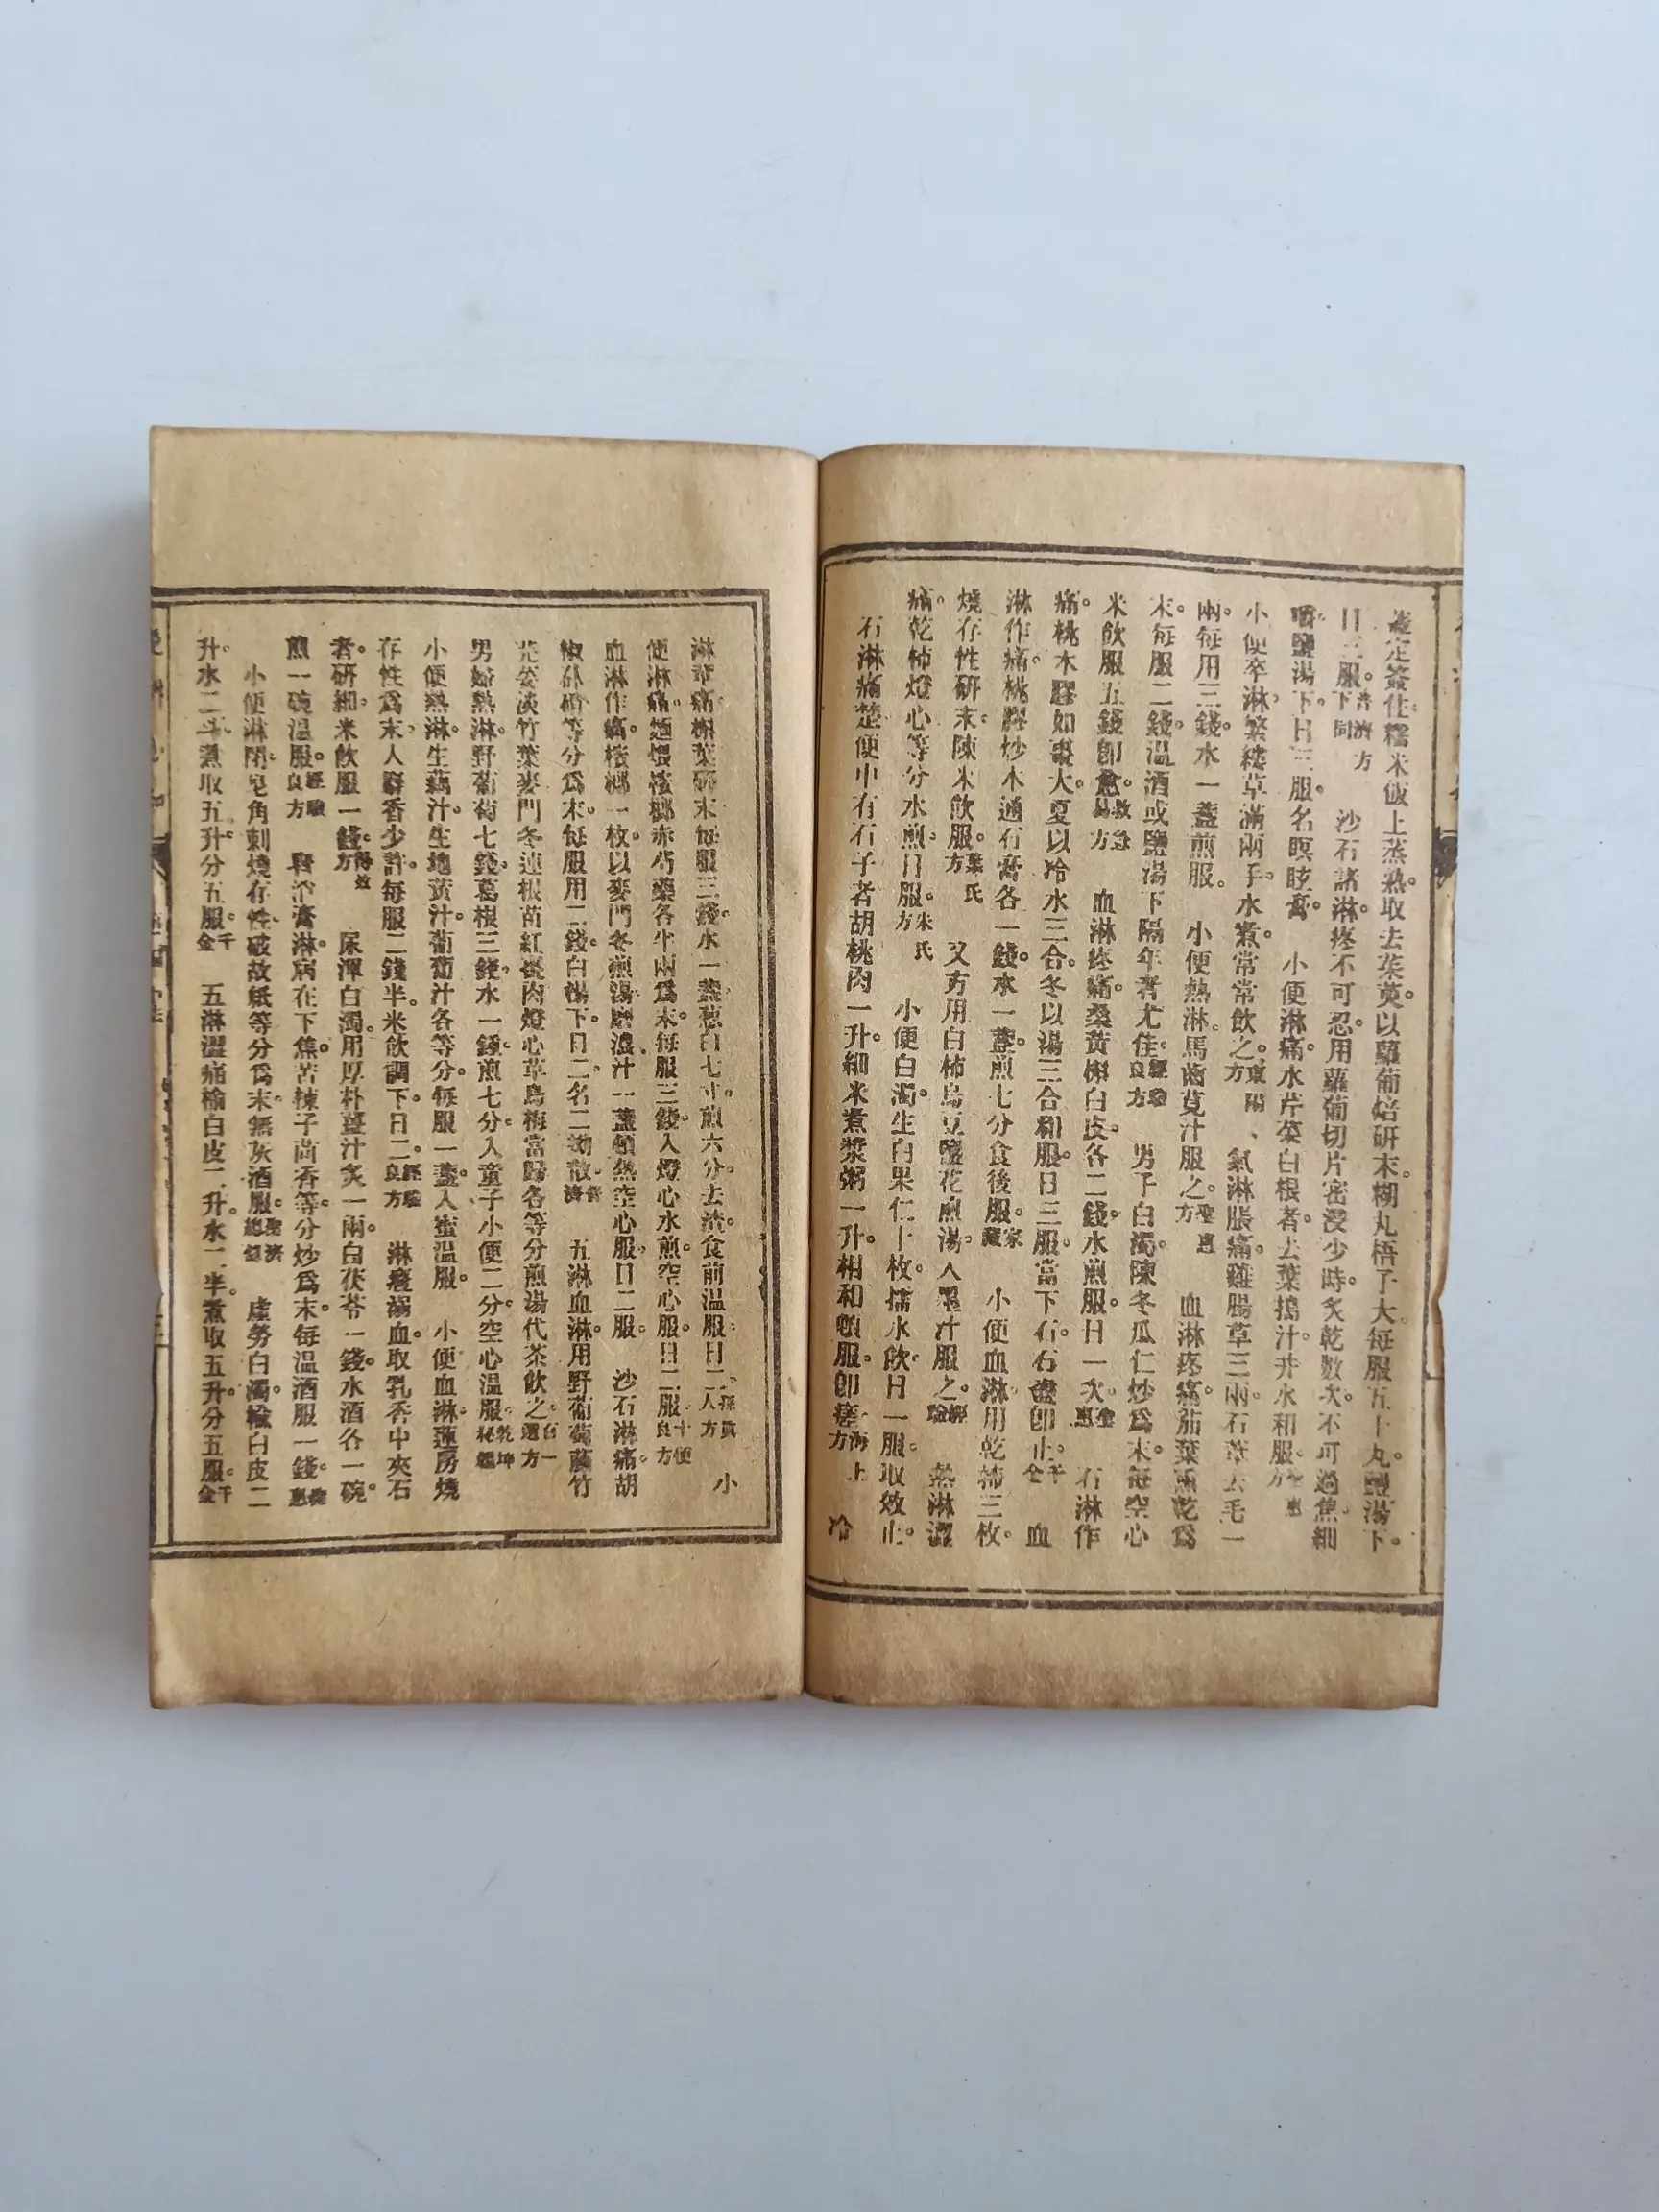 蓋定簽住糯米飯上蒸熟取去茱萸。以蘿蔔焙研末。糊丸梧子大每服五十丸。鹽湯下。
日三服。普濟方下同 沙石諸淋。疼不可忍。用蘿蔔切片密浸少時。炙乾數次。不可過焦。細
嚼鹽湯下。日三服。名瞑眩膏 小便淋痛。水芹菜白根者。去葉搗汁。井水和服。
小便卒淋。繁縷草滿兩手。水煮。常常飲之。東陽方 氣淋脹痛。雞腸草三兩。石葦去毛一
兩。每用三錢。水一盞煎服。 小便熱淋。馬齒莧汁服之。聖惠方 血淋疼痛。茄葉熏乾為
末。每服二錢。溫酒或鹽湯下。隔年者尤佳。經驗良方 男子白濁。陳冬瓜仁炒為末。每空心
米飲服五錢卽愈。救急易方 血淋疼痛。桑黃槲白皮。各二錢。水煎服。日一次。聖惠 石淋作
痛。桃木膠如棗大。夏以冷水三合。冬以湯三合和服。日三服。當下石。石盡卽止。千金 血
淋作痛。桃膠炒木通石膏各一錢。水一盞。煎七分食後服。家藏 小便血淋。用乾柿三枚。
燒存性研末。陳米飲服。葉氏方 又方用白柿烏豆鹽花煎湯。入墨汁服之。經驗 熱淋澀
痛。乾柿燈心等分水煎日服。朱氏方 小便白濁。生白果仁十枚。擂水飲。日一服。取效止。
石淋痛楚。便中有石子者。胡桃肉一升。細米煮漿粥一升。相和頓服。卽瘥。海上方 冷
淋莖痛。槲葉研末每服三錢。水一盞。葱白七寸。煎六分。去渣。食前溫服。日二。孫真人方 小
便淋痛。麵煨檳榔赤芍藥各半兩為末。每服三錢。入燈心水煎。空心服。日二服。十便良方
血淋作痛。檳榔一枚。以麥門冬煎湯。磨濃汁一盞。頓熱空心服。日二服。 沙石淋痛。胡
椒朴硝等分為末。每服用二錢。白湯下。日二。名二拗散。普濟 五淋血淋。用野葡萄藤竹
園荽淡竹葉麥門冬連根苗紅棗肉燈心草烏梅當歸各等分煎湯代茶飲之。百一選方
男婦熱淋。野葡萄七錢。葛根三錢。水一鍾。煎七分。入童子小便二分。空心溫服。乾坤秘韞
小便熱淋。生藕汁。生地黃汁。葡萄汁各等分。每服一盞。入蜜溫服。 小便血淋。蓮房燒
存性為末。入麝香少許。每服二錢半。米飲調下。日二。經驗良方 淋瀝溺血。取乳香中夾石
者。研細。米飲服一錢。得效方 尿渾白濁。用厚朴薑汁炙一兩。白茯苓一錢。水酒各一碗。
煎一碗溫服。經驗良方 膏淋。病在下焦。苦楝子茴香等。分炒為末。每溫酒服一錢。
小便淋閉。皂角刺燒存性。破故紙等分為末。無灰酒服。聖濟總錄 虛勞白濁。榆白皮二
升。水二斗。煮取五升。分五服。千金 五淋澀痛榆白皮二升。水二半。煮取五升。分五服。千金